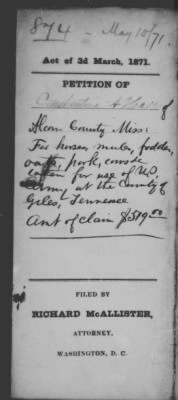 874 May 10/71.
Act of 3d March, 1871.
PETITION OF
of
Alcorn County Miss:
For horses, mules, fodder,
oats, pork,
for use of U.S.
Army, at the County of
Giles, Tennessee
Amt of claim $519.00
FILED BY
RICHARD McALLISTER,
ATTORNEY,
WASHINGTON, D. C.